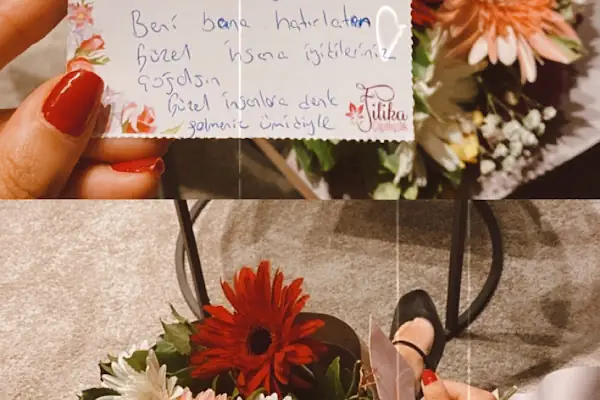 Beni bana hatırlatan
güzel insana iyikileriniz
çoğalsın
Güzel insanlara denk
gelmeniz ümidiyle
Filika